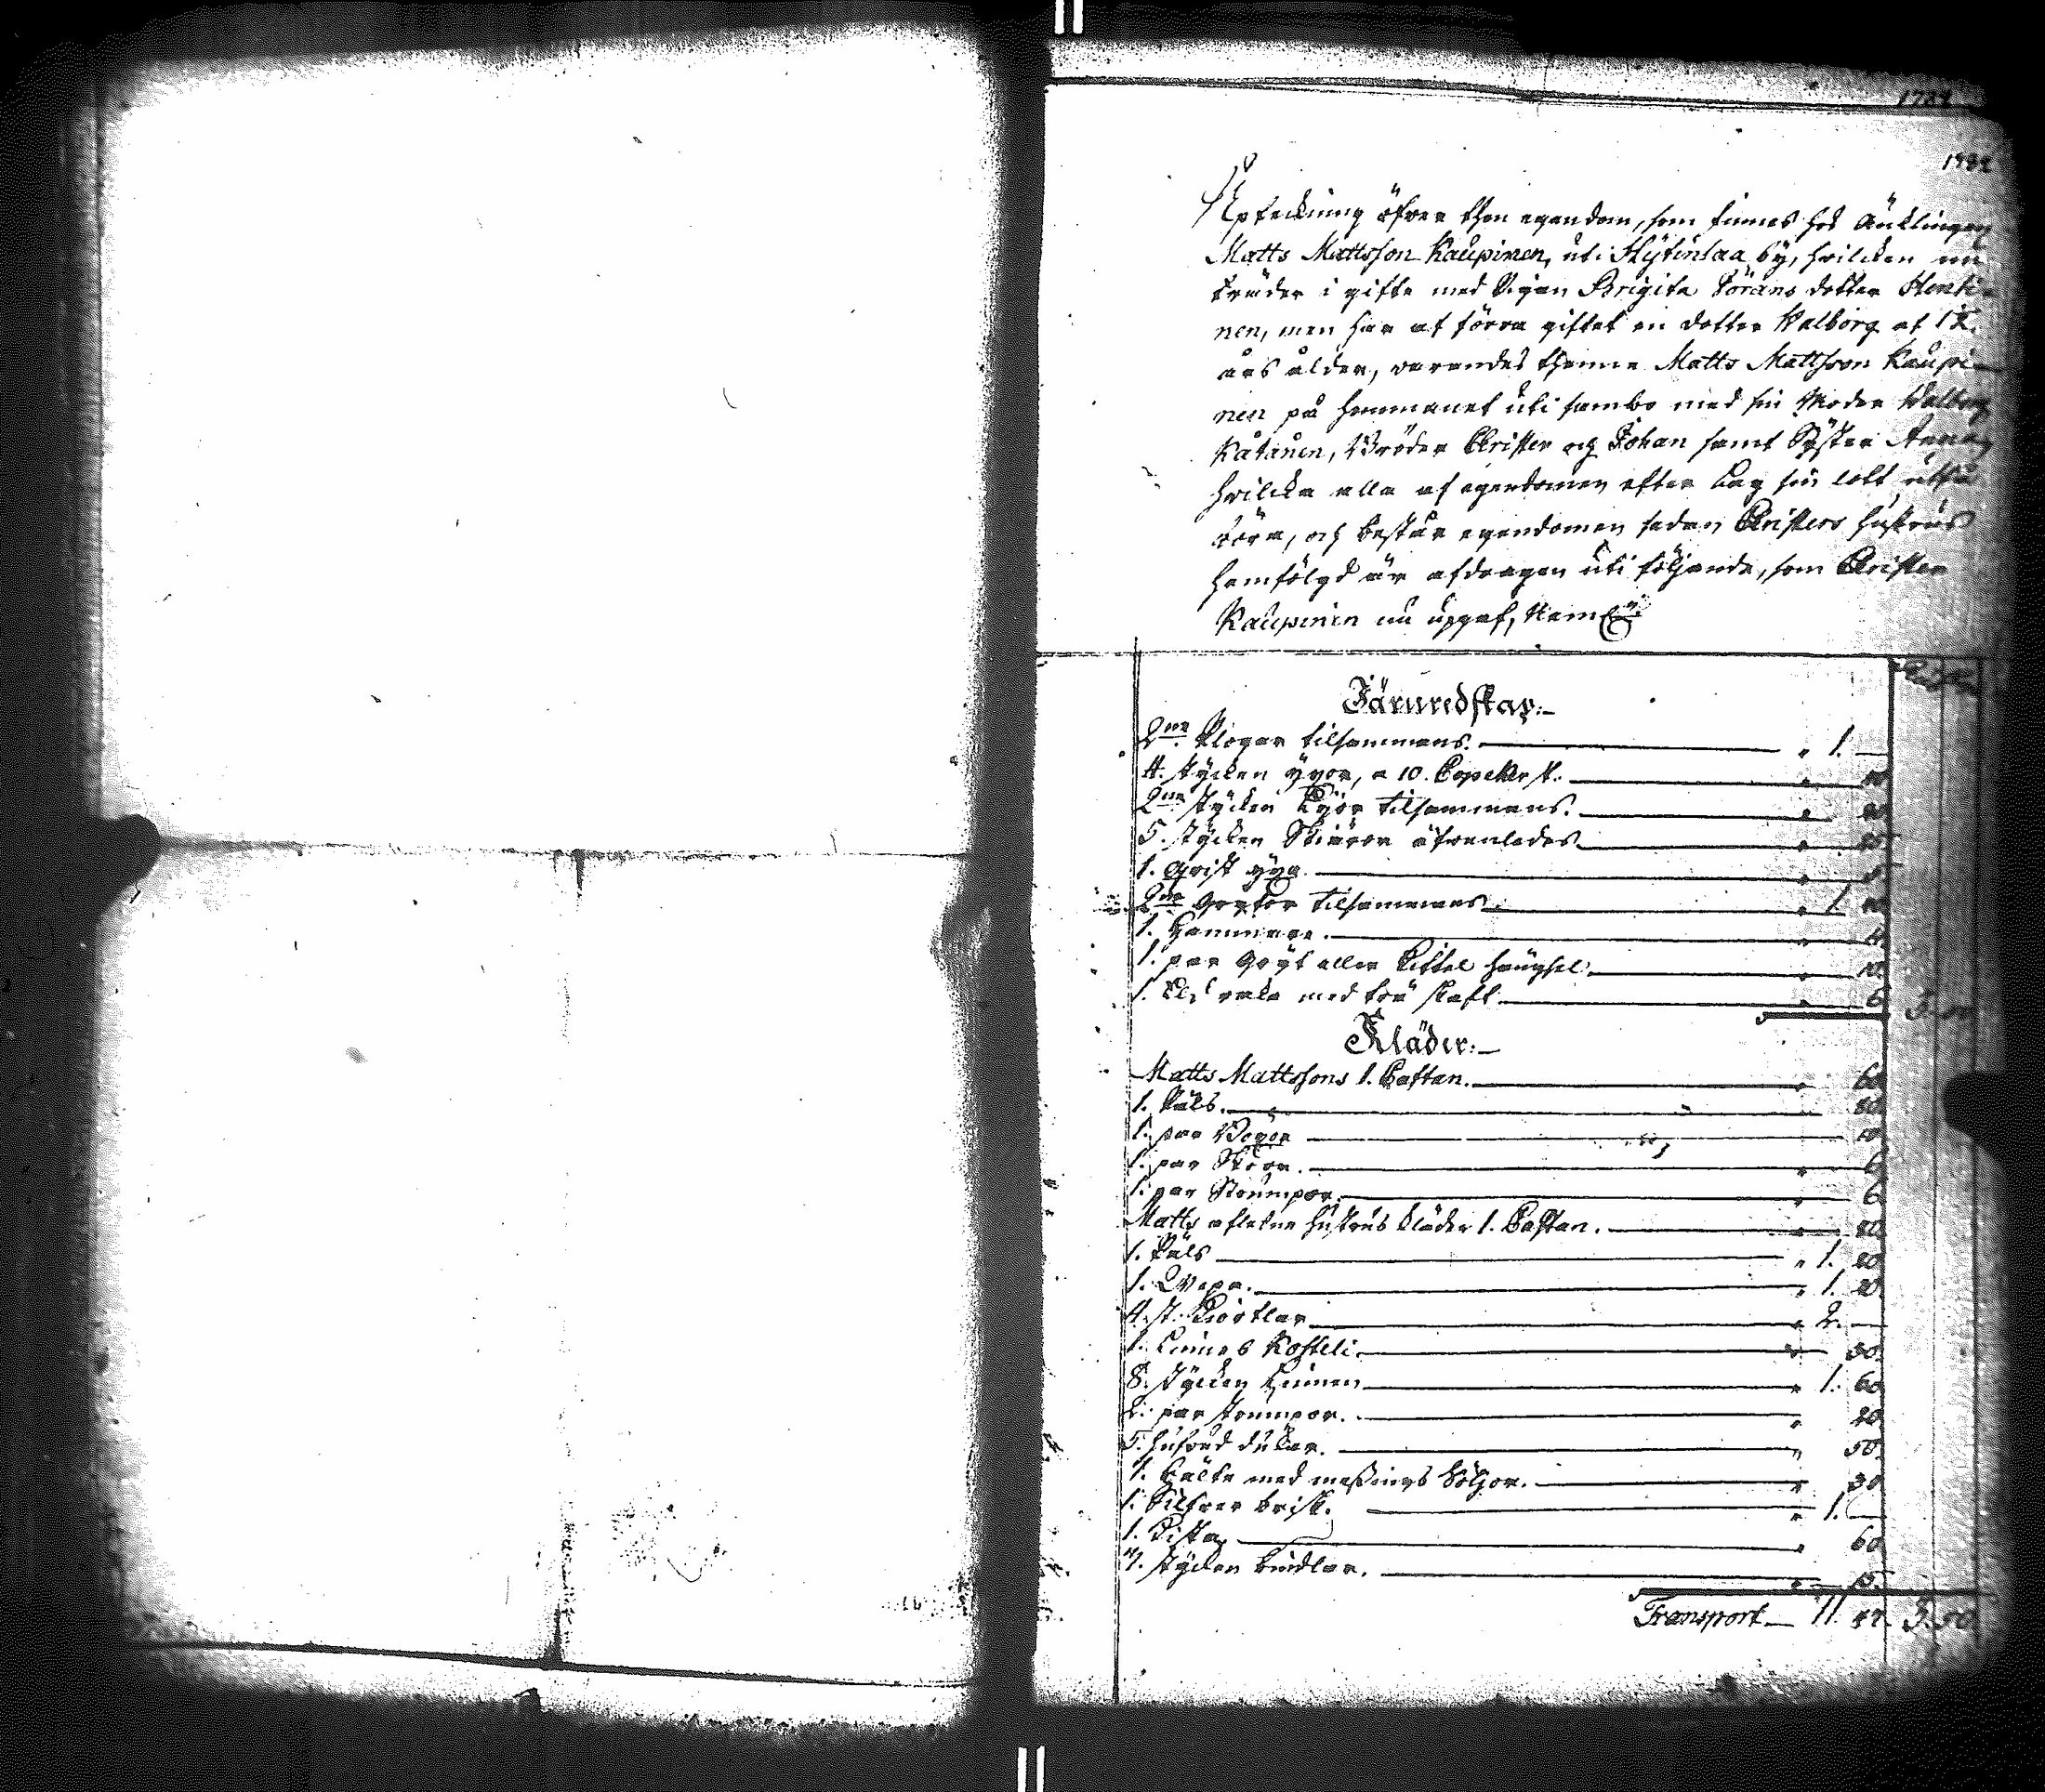 1784
1784
Upteckning öfver then egendom, som finnes hos Änklingen
Matts Mattsson Kaupinen, uti Hytinlaa by, hvilcken nu
träder i gifte med Pigan Brigita Jörans dotter Henti-
nen, men har af förra giftet en dotter Walborg af 1½.
års ålder, varandes thenne Matts Mattsson Kaupi-
nen på hemmanet uti sambo med sin Moder Walborg
Katanen, Bröder Christer och Johan samt Syster Anna,
hvilcka alla af egendomen efter Lag sin lott utfå
böra, och består egendomen sedan Christers hustrus
hemfölgd är afdragen uti följande, som Christer
Kaupinen nu uppgaf, Neml:
Järnredskap:
2ne Plogar tilsammans. " 1. —
4. stycken yxor, a 10. Copeker st. " 40
2ne stycken Lijor tilsammans. " 20
5. stycken Skiäror äfvenledes " 25
1. Qvist yxa. "
2ne Grytor tilsammans. " 1.
1. Hammare. " 4.
1. par Gryt eller Kittel hängsel. " 10.
1. raka med trä skaft. " 6. 3. 50
Kläder:
Matts Mattssons 1. Caftan. " 60
1. Päls. 80.
1. par Böxor 10
1. par Skor. " 6
1. par Strumpor. " 6.
Matts afledne hustrus kläder 1. Caftan. " 80.
1. Päls " 1. 20
1. " 1. 20.
4. st. Kiortlar " 2. —
1. Linnes Kosteli. " 30.
8. stycken Linnen " 1. 60
2. par strumpor. " 20
5. hufvud dukar. " 50.
1. Bälte med messings Söljor. " 30
1. Silfver brisk. " 1. —
1. Kista " 60
7. stycken bindlar. " 15.
Transport — 11. 47. 3. 50